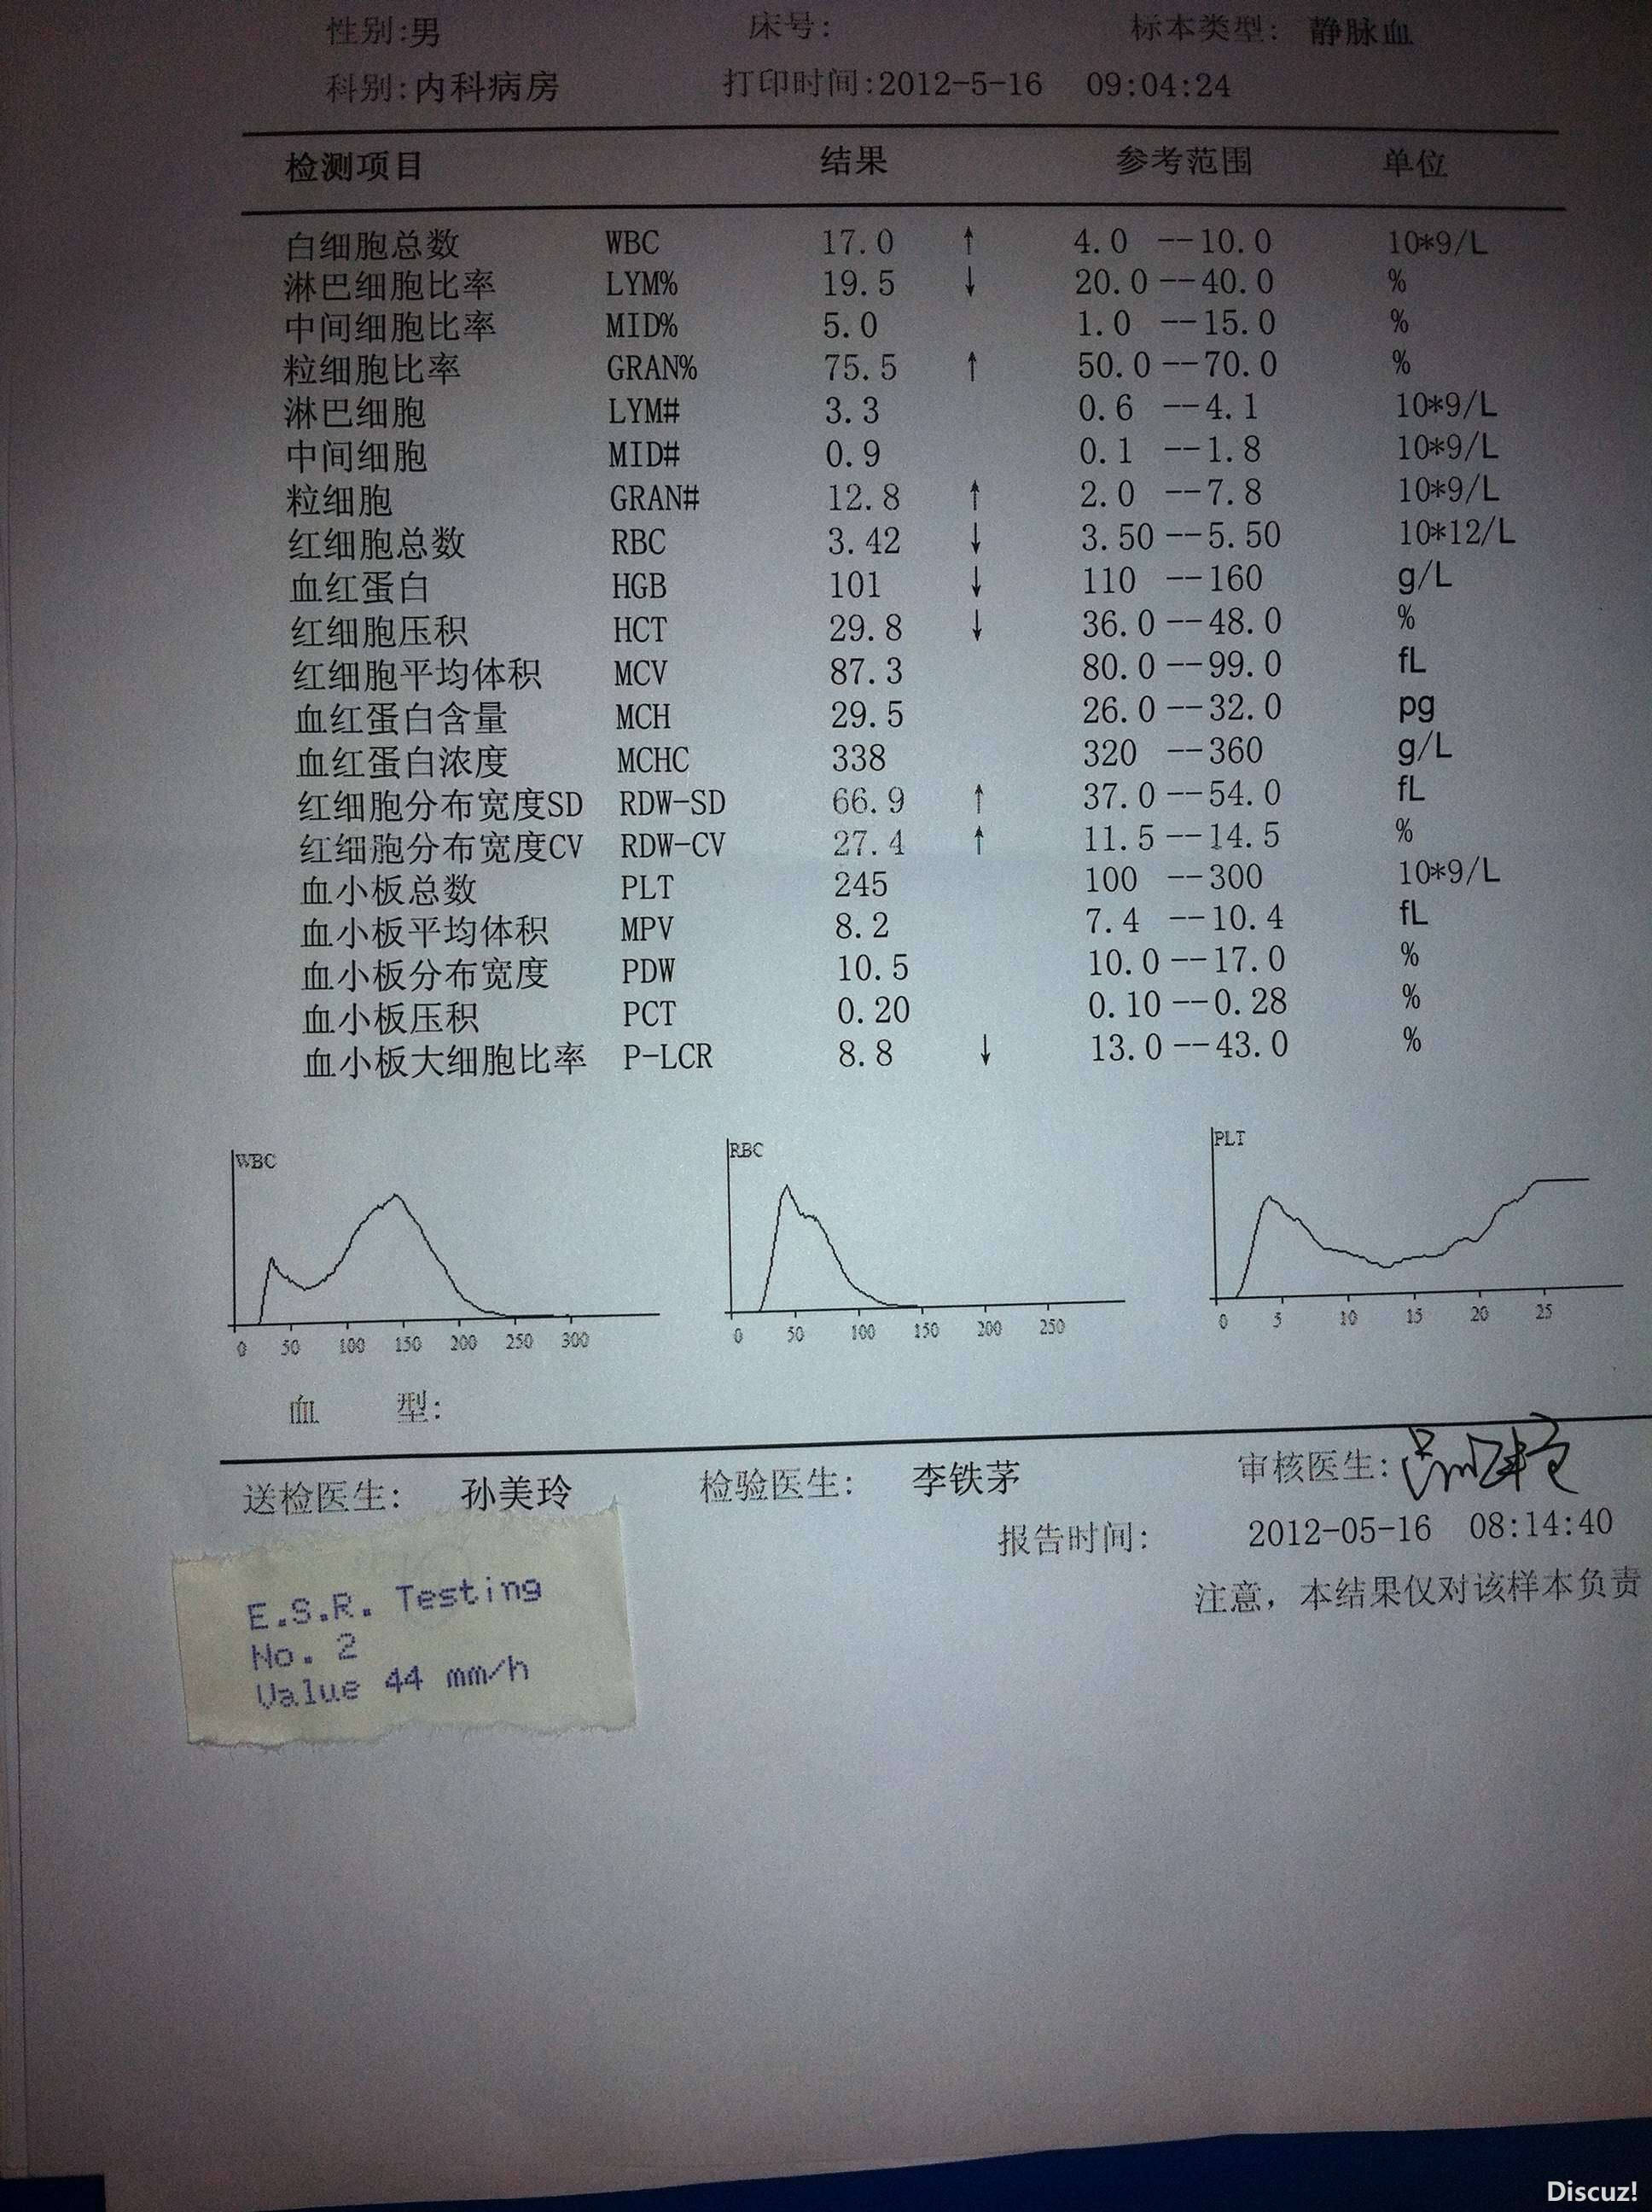 性别:男 床号: 标本类型: 静脉血
科别:内科病房 打印时间:2012-5-16 09:04:24
检测项目 结果 参考范围 单位
白细胞总数 WBC 17.0 ↑ 4.0 --10.0 10*9/L
淋巴细胞比率 LYM% 19.5 ↓ 20.0--40.0 %
中间细胞比率 MID% 5.0 1.0 --15.0 %
粒细胞比率 GRAN% 75.5 ↑ 50.0--70.0 %
淋巴细胞 LYM# 3.3 0.6 --4.1 10*9/L
中间细胞 MID# 0.9 0.1 --1.8 10*9/L
粒细胞 GRAN# 12.8 ↑ 2.0 --7.8 10*9/L
红细胞总数 RBC 3.42 ↓ 3.50--5.50 10*12/L
血红蛋白 HGB 101 ↓ 110 --160 g/L
红细胞压积 HCT 29.8 ↓ 36.0--48.0 %
红细胞平均体积 MCV 87.3 80.0--99.0 fL
血红蛋白含量 MCH 29.5 26.0--32.0 pg
血红蛋白浓度 MCHC 338 320 --360 g/L
红细胞分布宽度SD RDW-SD 66.9 ↑ 37.0--54.0 fL
红细胞分布宽度CV RDW-CV 27.4 ↑ 11.5--14.5 %
血小板总数 PLT 245 100 --300 10*9/L
血小板平均体积 MPV 8.2 7.4 --10.4 fL
血小板分布宽度 PDW 10.5 10.0--17.0 %
血小板压积 PCT 0.20 0.10--0.28 %
血小板大细胞比率 P-LCR 8.8 ↓ 13.0--43.0 %
WBC RBC PLT
0 50 100 150 200 250 300 0 50 100 150 200 250 0 5 10 15 20 25
血 型:
送检医生: 孙美玲 检验医生: 李铁茅 审核医生:
报告时间: 2012-05-16 08:14:40
注意，本结果仅对该样本负责
E.S.R. Testing
No. 2
Value 44 mm/h
Discuz!